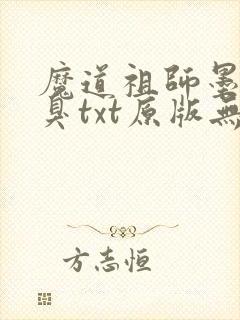 魔道祖師墨
臭txt原版無
方志恒